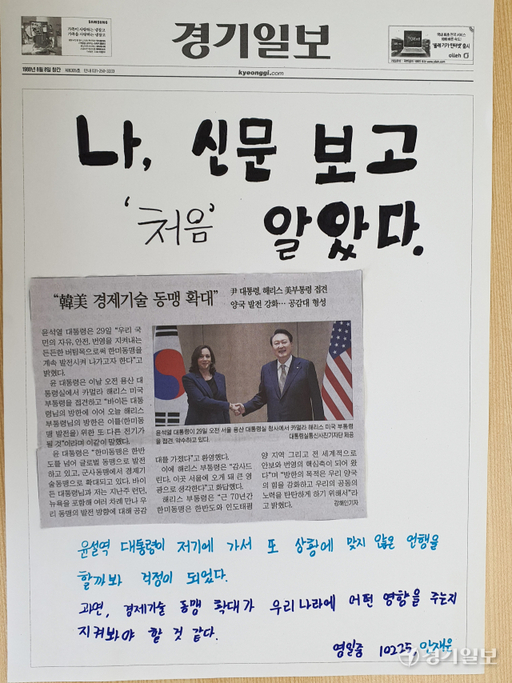 SAMSUNG
경기일보
kyeonggi.com
olleh
나, 신문 보고
'처음' 알았다.
“韓美 경제기술 동맹 확대”
尹 대통령, 해리스 美부통령 접견
양국 발전 강화… 공감대 형성
윤석열 대통령은 29일 “우리 국
민의 자유, 안전, 번영을 지켜내는
든든한 버팀목으로써 한미동맹을
계속 발전시켜 나가고자 한다”고
밝혔다.
윤 대통령은 이날 오전 용산 대
통령실에서 카멀라 해리스 미국
부통령을 접견하고 “바이든 대통
령님의 방한에 이어 오늘 해리스
부통령님의 방한은 이를(한미동
맹 발전을) 위한 또 다른 전기가
될 것”이라며 이같이 말했다.
윤 대통령은 “한미동맹은 한반
도를 넘어 글로벌 동맹으로 발전
하고 있고, 군사동맹에서 경제기
술동맹으로 확대되고 있다. 바이
든 대통령님과 저는 지난주 런던,
뉴욕을 포함해 여러 차례 만나 우
리 동맹의 발전 방향에 대해 공감
윤석열 대통령이 29일 오전 서울 용산 대통령실 청사에서 카멀라 해리스 미국 부통령
을 접견, 악수하고 있다.
대통령실통신사진기자단 제공
대를 가졌다”고 환영했다.
이에 해리스 부통령은 “감사드
린다. 이곳 서울에 오게 돼 큰 영
광으로 생각한다”고 화답했다.
해리스 부통령은 “근 70년간
한미동맹은 한반도와 인도태평
양 지역 그리고 전 세계적으로
안보와 번영의 핵심축이 되어 왔
다”며 “방한의 목적은 우리 양국
의 힘을 강화하고 우리의 공동의
노력을 탄탄하게 하기 위해서”라
고 밝혔다.
강해인기자
윤설역 대통령이 저기에 가서 또 상황에 맞지 않은 언행을
할까봐 걱정이 되었다.
과연, 경제기술 동맹 확대가 우리나라에 어떤 영향을 주는지
지켜봐야 할 것 같다.
영일중 10225, 안재윤
경기일보